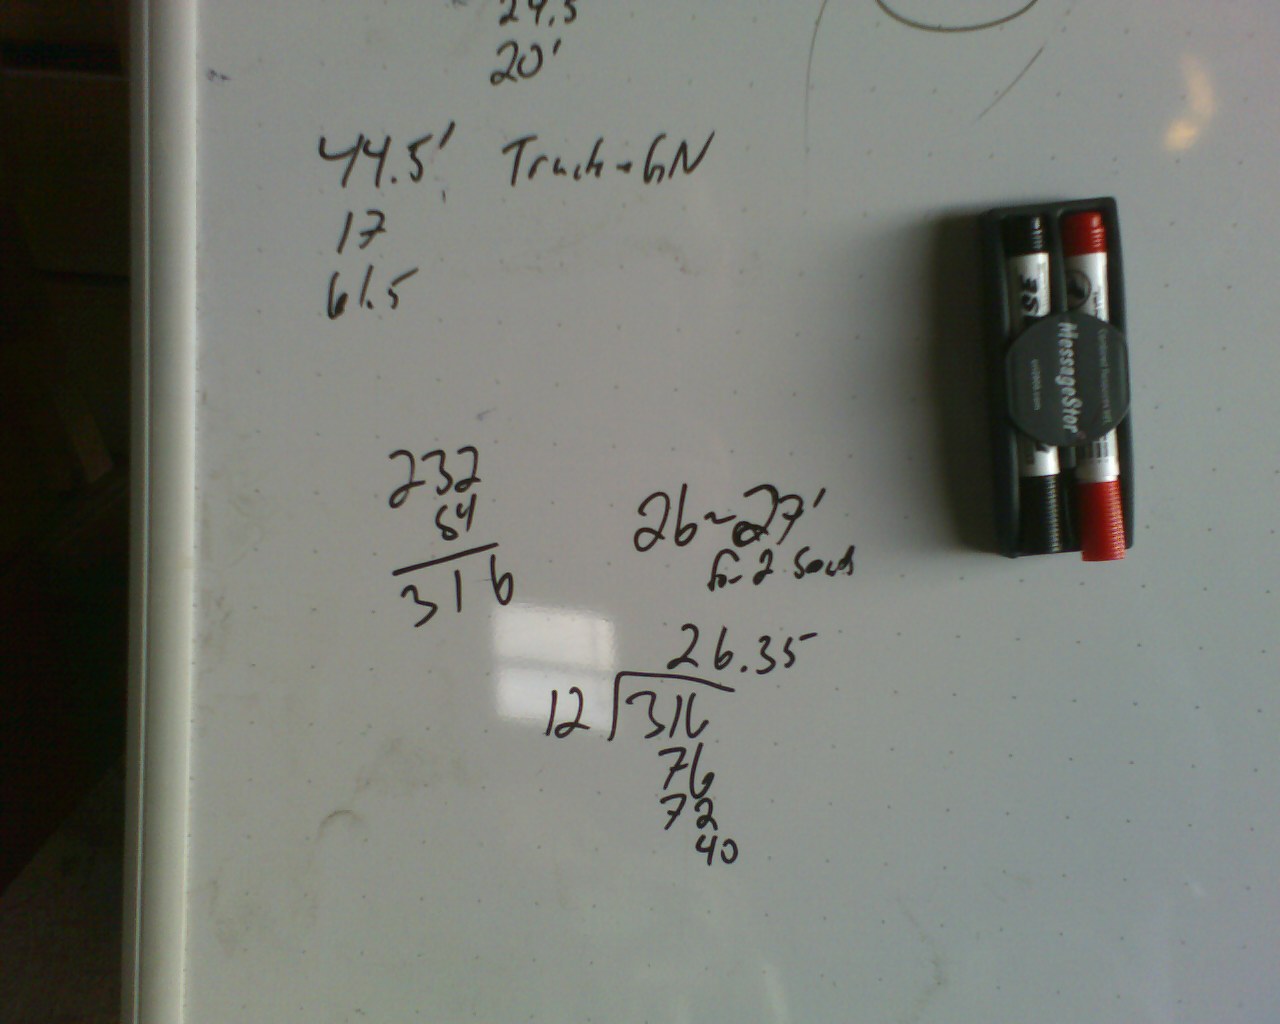 24.5
20'
44.5' Truck + GN
17
61.5
232
84
316
26~27'
for 2
26.35
12 316
76
72
40
MessageStor